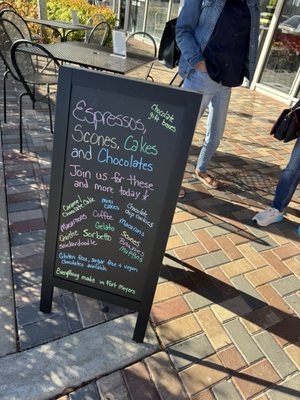 Espressos,
Chocolate
gift boxes
Scones, Cakes
and Chocolates
Join us for these
and more today &
Caramel
Chocolate
Cake
mini
Cakes
Chocolate
chip cookies
Macaroons
Coffee
Macarons
Gelato
Quiche
Sorbetto
Scones
Brownies
Muffins
Snickerdoodle
Gluten free, sugar free & vegan
Cakes available
Everything made in Fort Myers